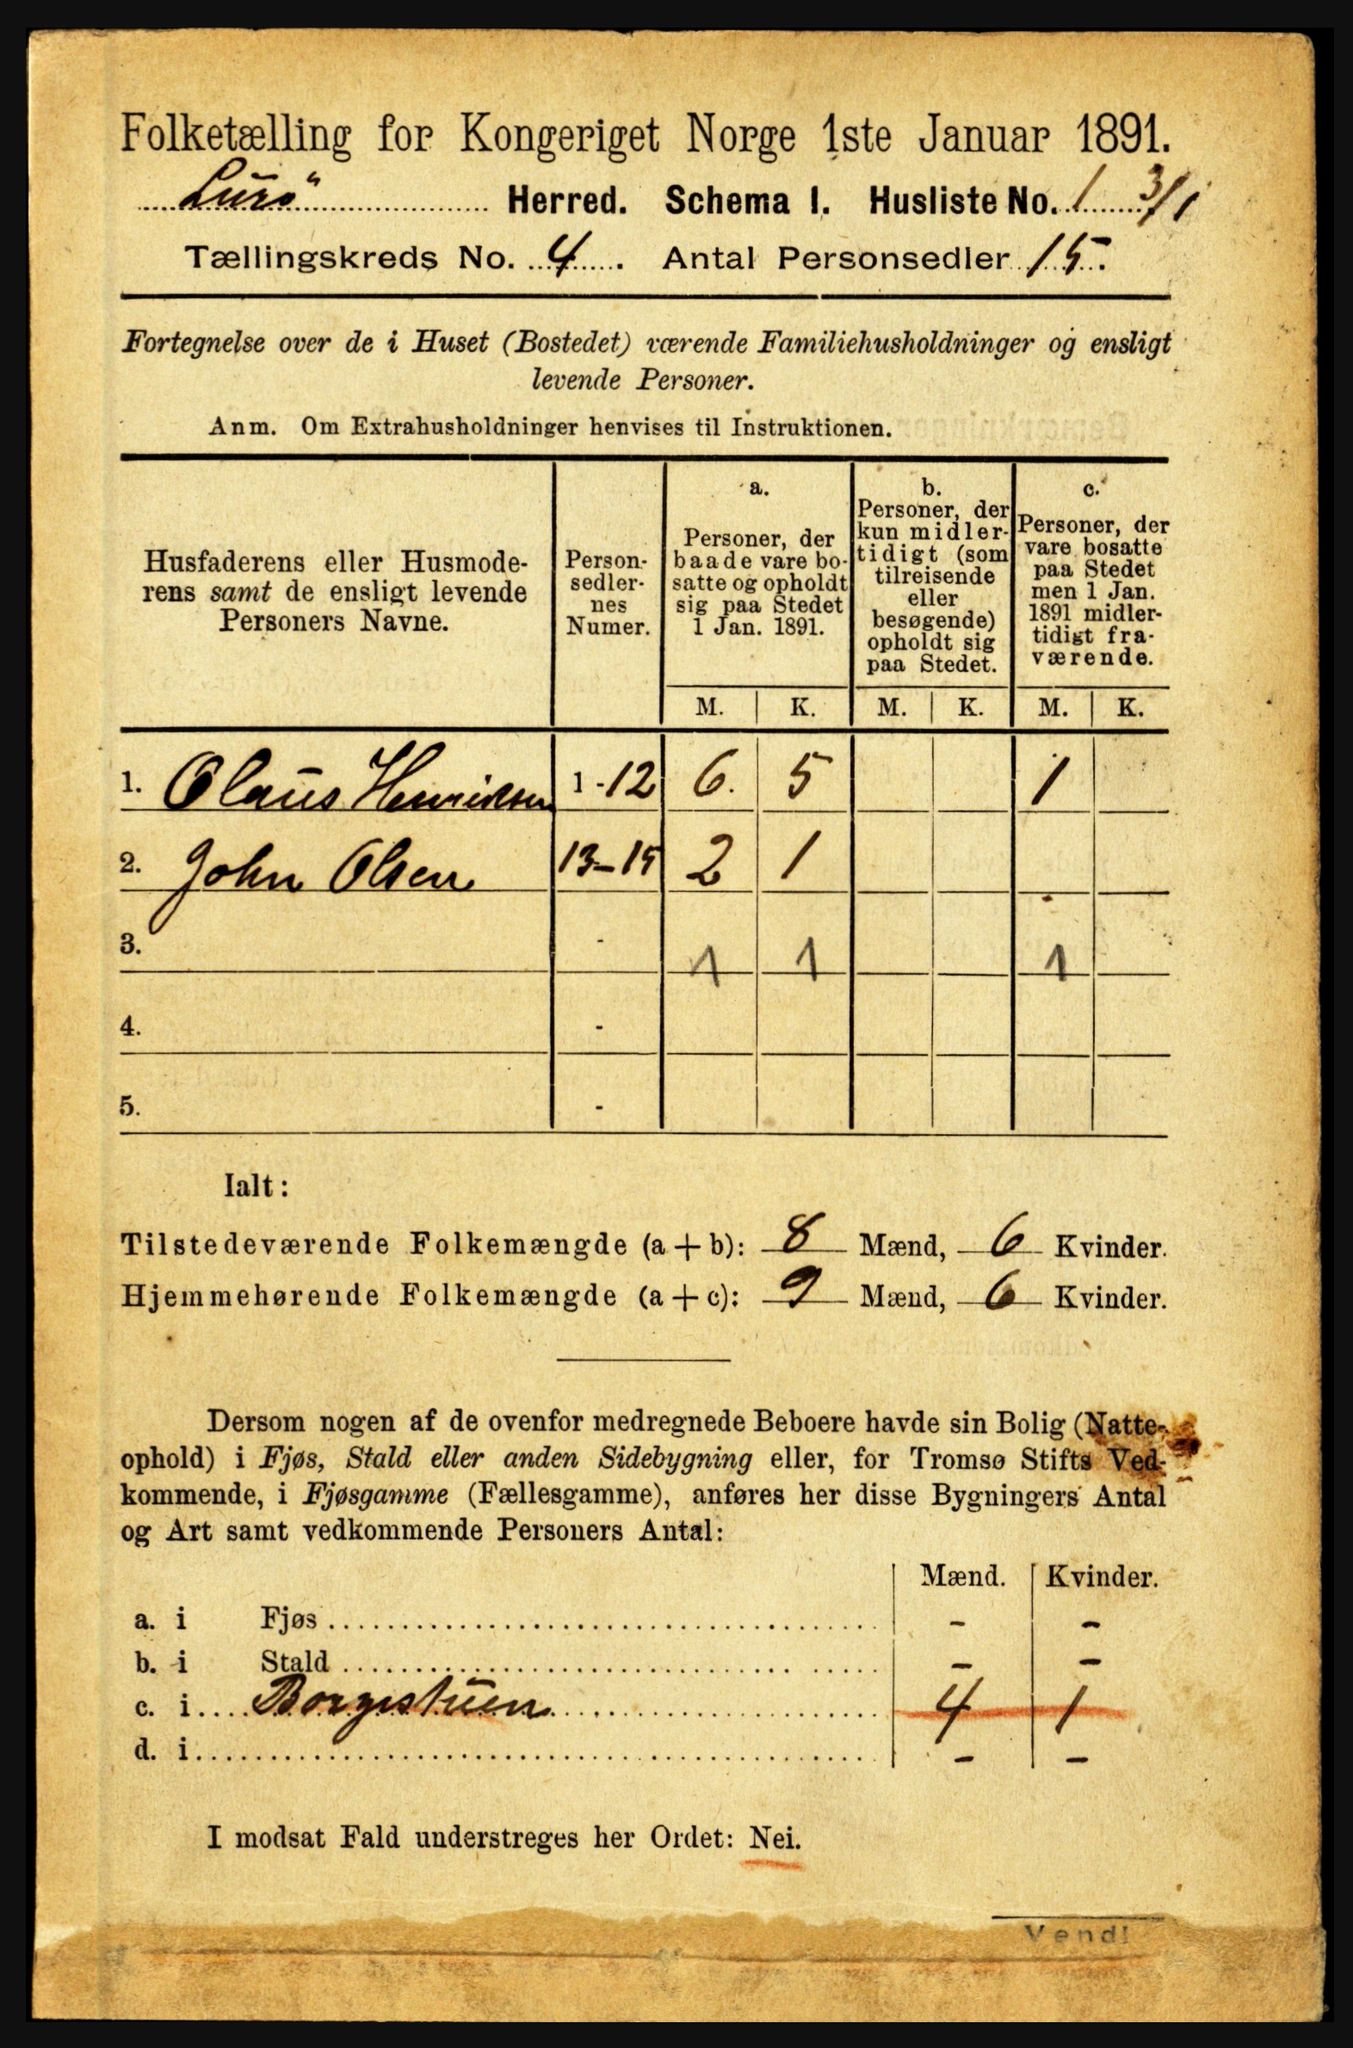 Folketælling for Kongeriget Norge 1ste Januar 1891.
Lurö Herred. Schema I. Husliste No. 1 3/1
Tællingskreds No. 4. Antal Personsedler 15.
Fortegnelse over de i Huset (Bostedet) værende Familiehusholdninger og ensligt
levende Personer.
Anm. Om Extrahusholdninger henvises til Instruktionen.
Husfaderens eller Husmode-
rens samt de ensligt levende
Personers Navne.
Person-
sedler-
nes
Numer.
a.
Personer, der
baade vare bo-
satte og opholdt
sig paa Stedet
1 Jan. 1891.
b.
Personer, der
kun midler-
tidigt (som
tilreisende
eller
besøgende)
opholdt sig
paa Stedet.
c.
Personer, der
vare bosatte
paa Stedet
men 1 Jan.
1891 midler-
tidigt fra-
værende.
M. K. M. K. M. K.
1. Olaus Henriksen 1-12 6. 5 1
2. John Olsen 13-15 2 1
3. - 1 1 1
4. -
5. -
Ialt:
Tilstedeværende Folkemængde (a+b): 8 Mænd, 6 Kvinder.
Hjemmehørende Folkemængde (a+c): 9 Mænd, 6 Kvinder.
Dersom nogen af de ovenfor medregnede Beboere havde sin Bolig (Natte-
ophold) i Fjøs, Stald eller anden Sidebygning eller, for Tromsø Stifts Ved-
kommende, i Fjøsgamme (Fællesgamme), anføres her disse Bygningers Antal
og Art samt vedkommende Personers Antal:
Mænd. Kvinder.
a. i Fjøs - -
b. i Stald - -
c. i Borgestuen 4 1
d. i - -
I modsat Fald understreges her Ordet: Nei.
Vend!